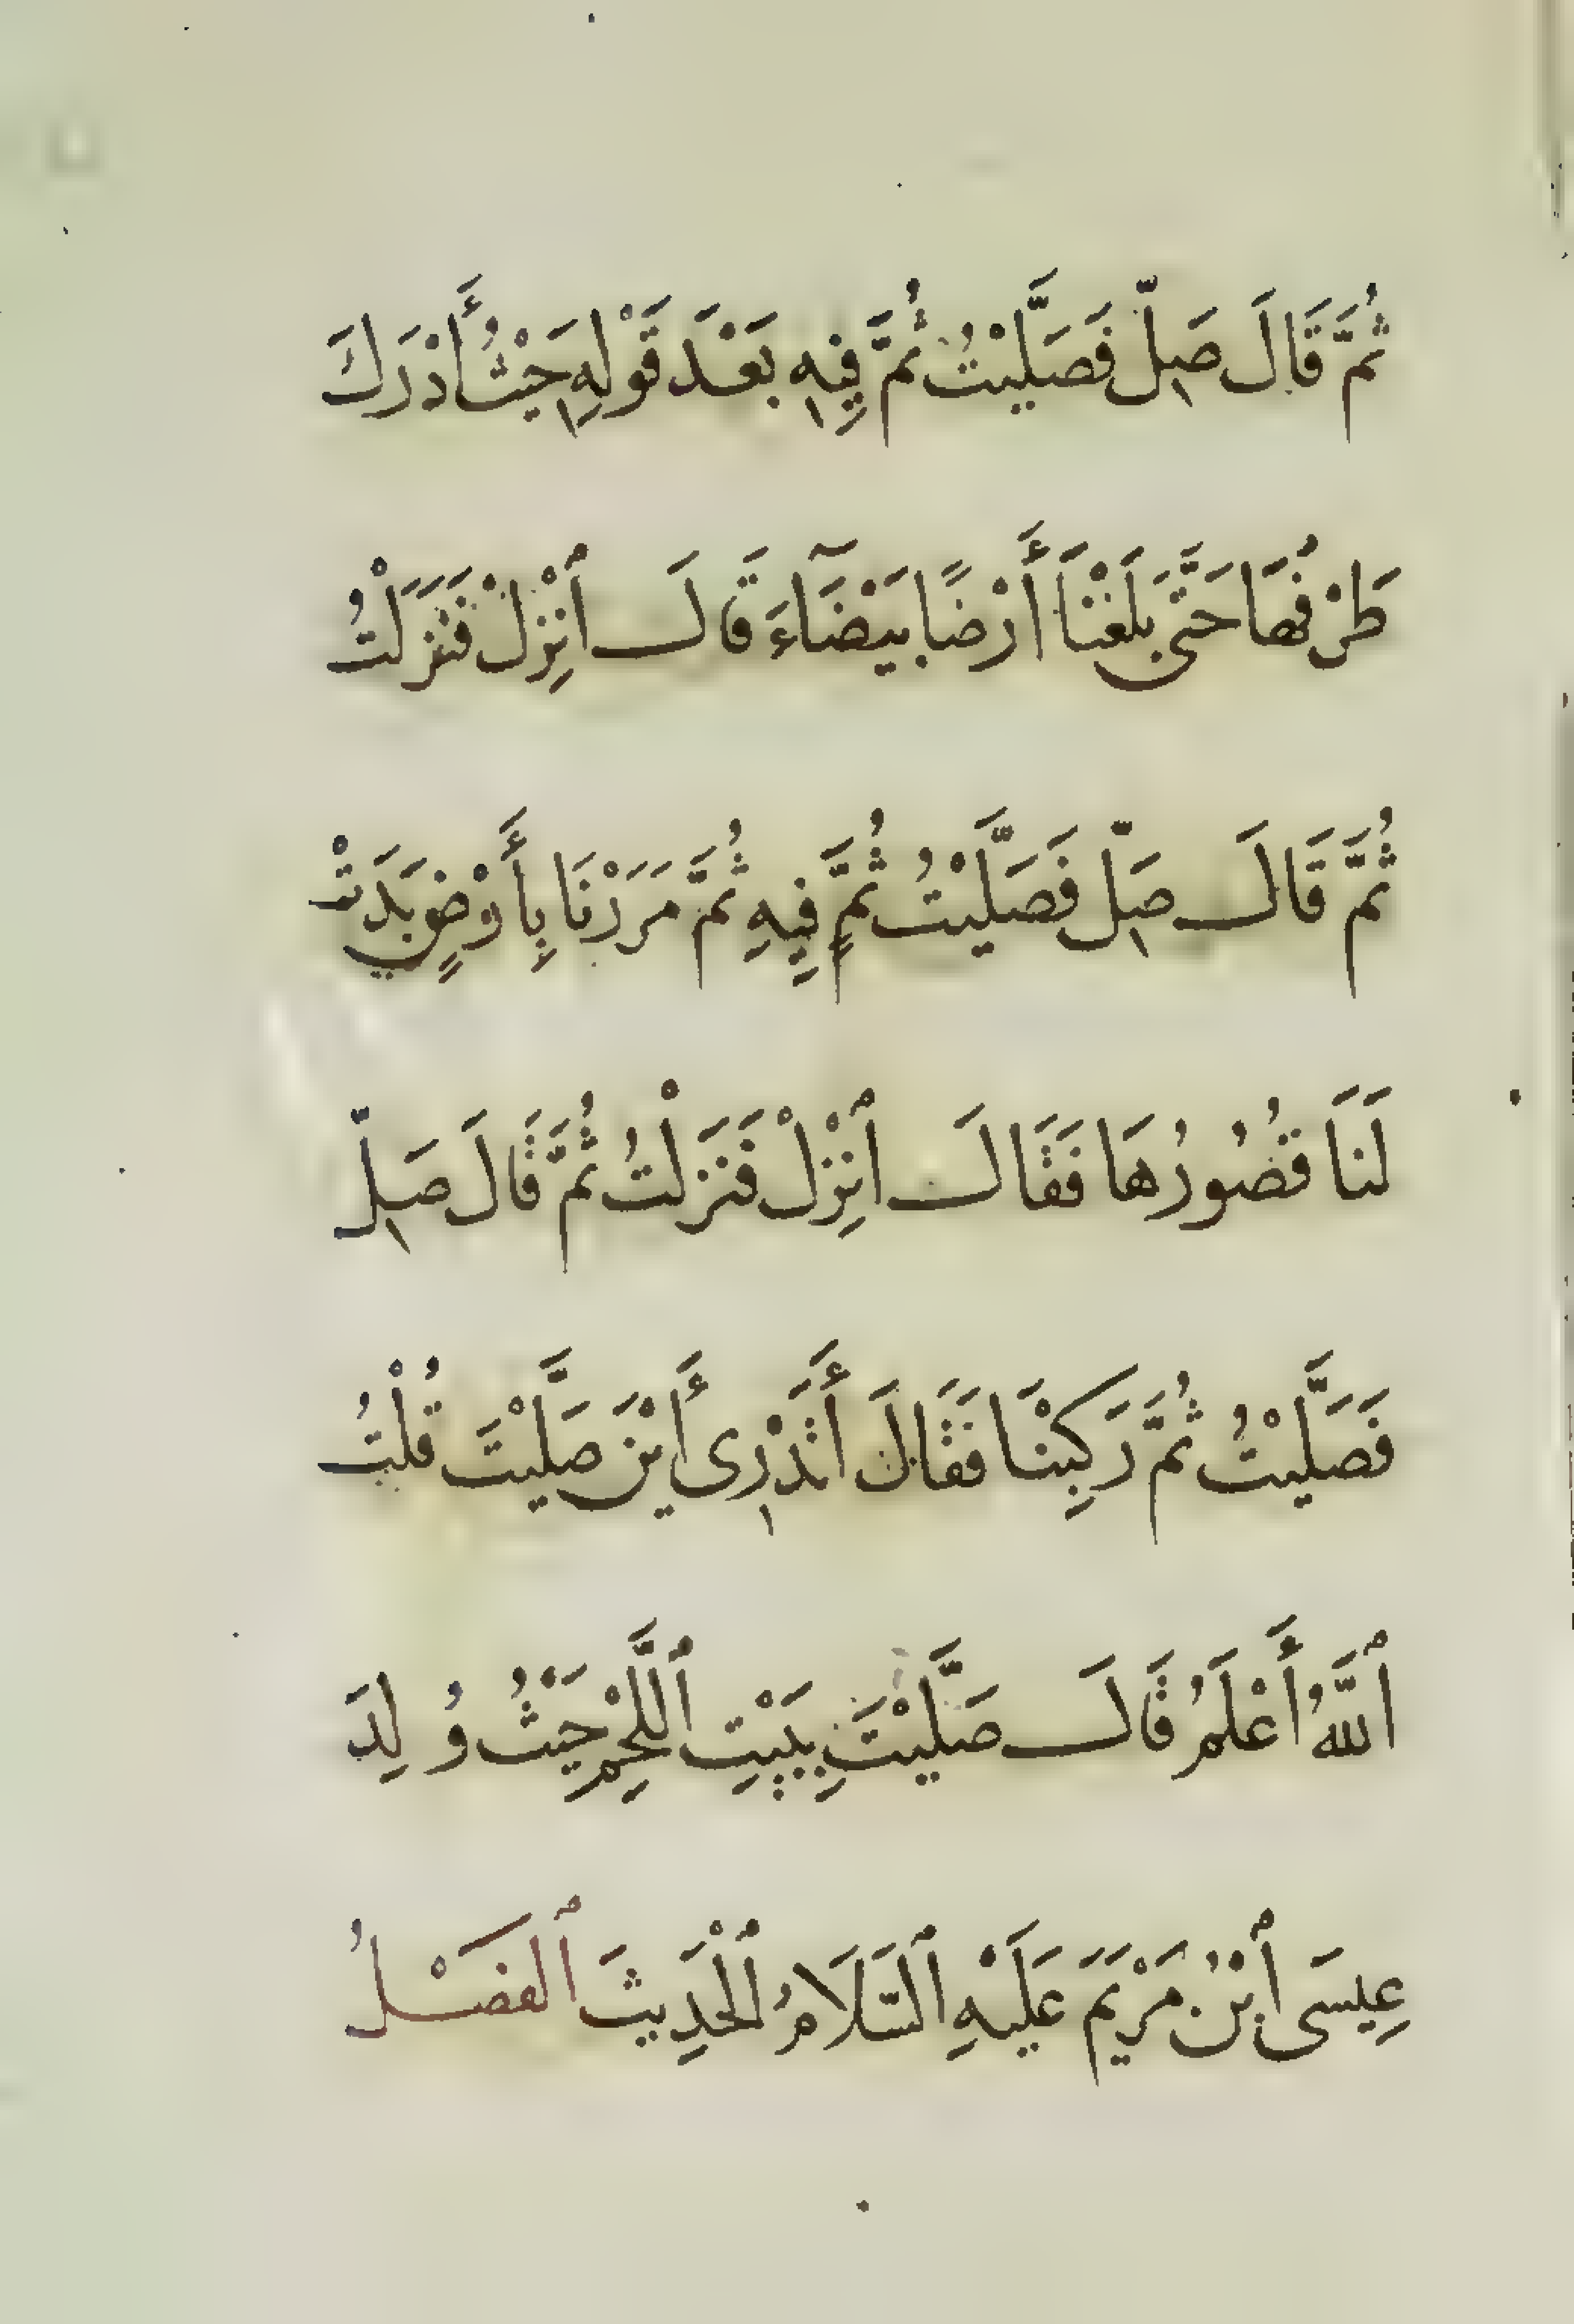 ثُمَّ قَالَ صَلِّ فَصَلَّيْتُ ثُمَّ فِيهِ بَعْدَ قَوْلِهِ حَيْثُ أَدْرَكَ
طَرْفُهَا حَتَّى بَلَغْنَا أَرْضًا بَيْضَآءَ قَالَ ٱنْزِلْ فَنَزَلْتُ
ثُمَّ قَالَ صَلِّ فَصَلَّيْتُ ثُمَّ فِيهِ ثُمَّ مَرَرْنَا بِأَرْضٍ بَدَتْ
لَنَا قُصُورُهَا فَقَالَ ٱنْزِلْ فَنَزَلْتُ ثُمَّ قَالَ صَلِّ
فَصَلَّيْتُ ثُمَّ رَكِبْنَا فَقَالَ أَتَدْرِى أَيْنَ صَلَّيْتَ قُلْتُ
ٱللَّهُ أَعْلَمُ قَالَ صَلَّيْتَ بِبَيْتِ ٱللَّحْمِ حَيْثُ وُلِدَ
عِيسَى ٱبْنُ مَرْيَمَ عَلَيْهِ ٱلسَّلَامُ ٱلْحَدِيثَ ٱلْفَصْلُ